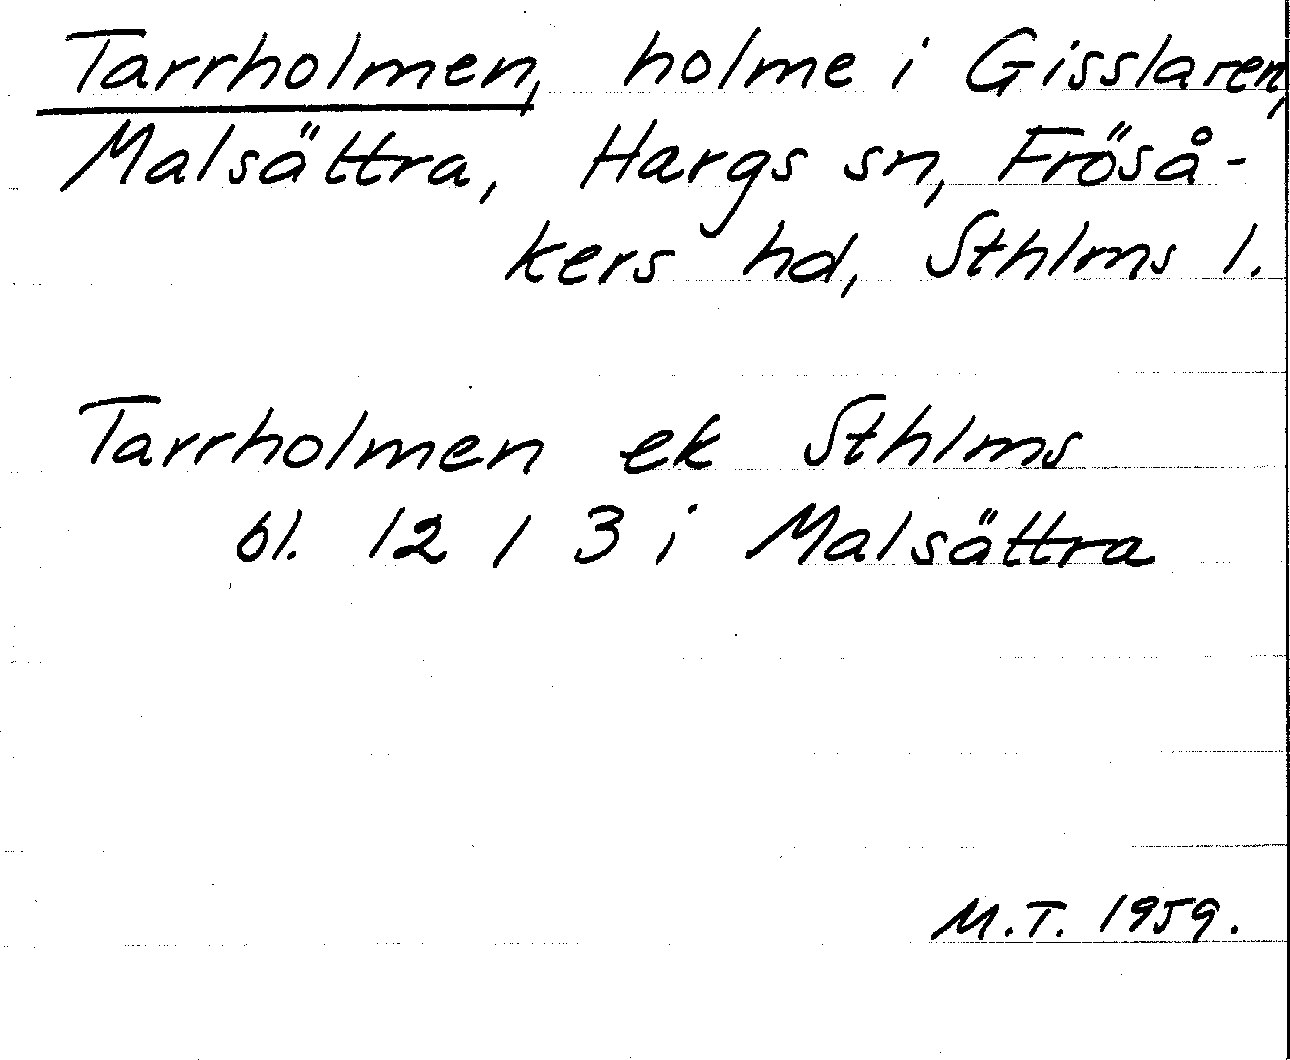 Tarrholmen, holme i Gisslaren,
Malsättra, Hargs sn, Fröså-
kers hd, Sthlms l.
Tarrholmen ek Sthlms
bl. 12 / 3 i Malsättra
M.T. 1959.